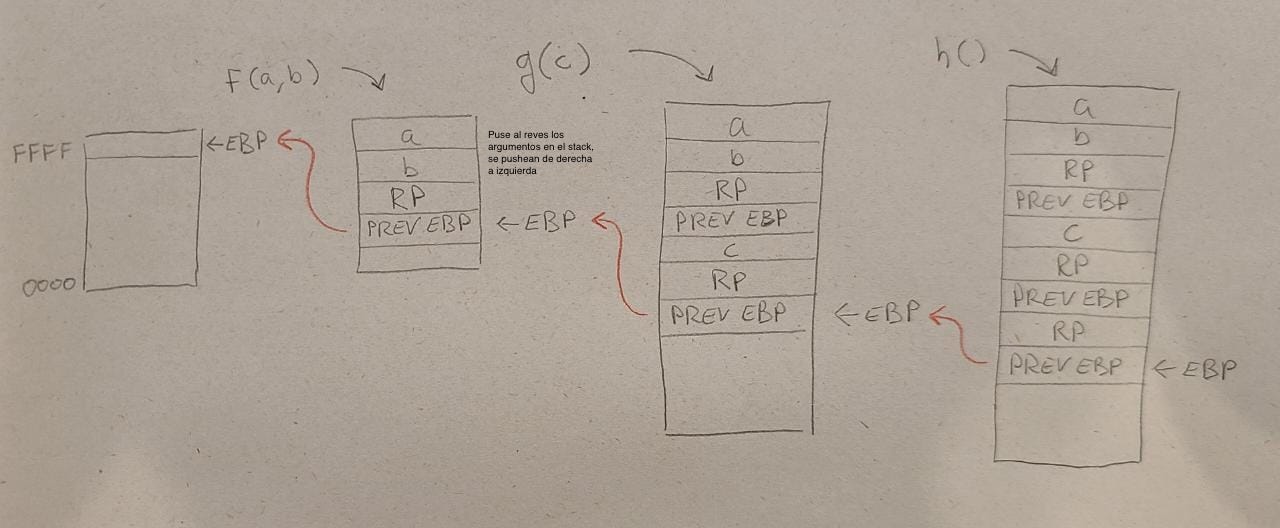 f(a,b)
g(c)
h()
FFFF
0000
←EBP
a
b
RP
PREV EBP
Puse al reves los
argumentos en el stack,
se pushean de derecha
a izquierda
←EBP
a
b
RP
PREV EBP
c
RP
PREV EBP
←EBP
a
b
RP
PREV EBP
C
RP
PREV EBP
RP
PREV EBP
←EBP